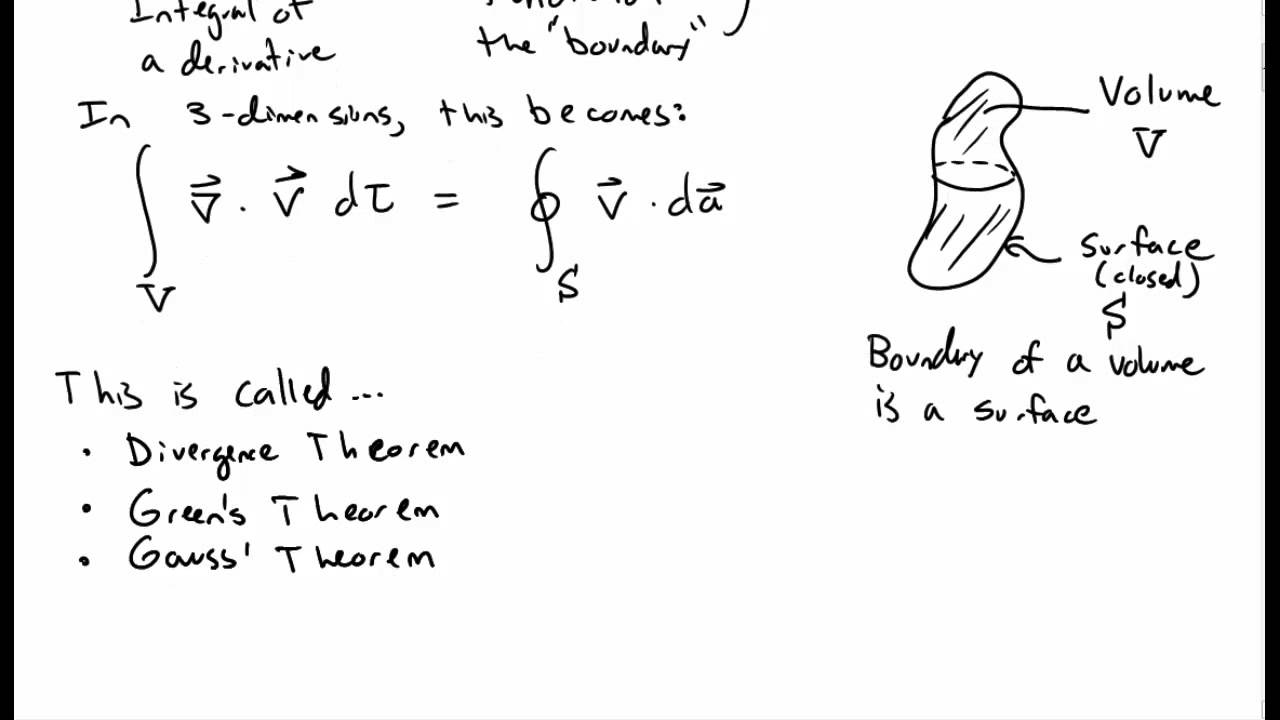 Integral of
a derivative
the "boundary"
In 3-dimensions, this becomes:
∫ ∇⃗ · v⃗ dτ = ∮ v⃗ · da⃗
V S
Volume
V
Surface
(closed)
S
Boundary of a volume
is a surface
This is called ...
• Divergence Theorem
• Green's Theorem
• Gauss' Theorem